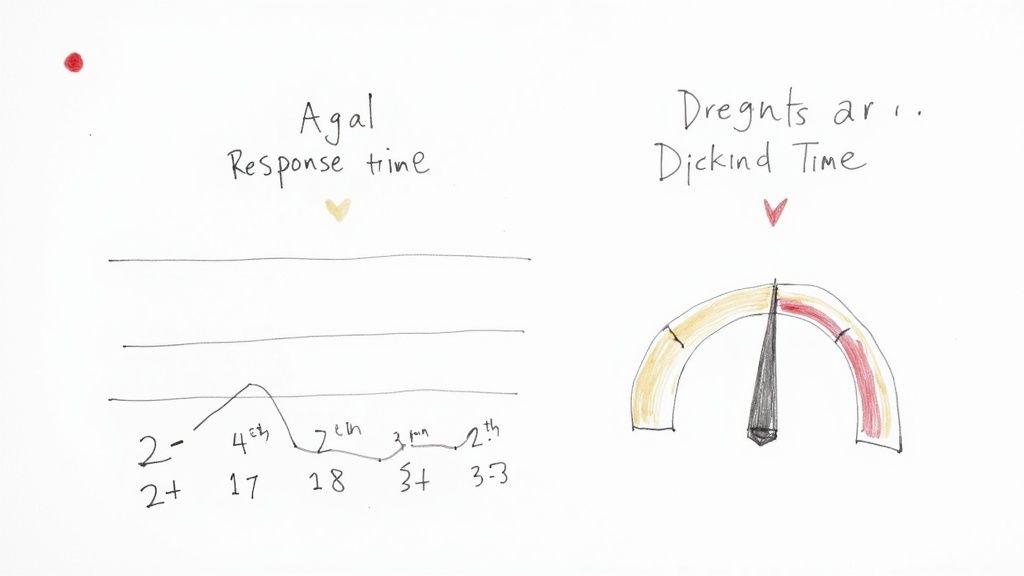 Agal
Response time
Dregnts ar ...
Djckind Time
2- 4 2 3 2th
2+ 17 18 3+ 3-3